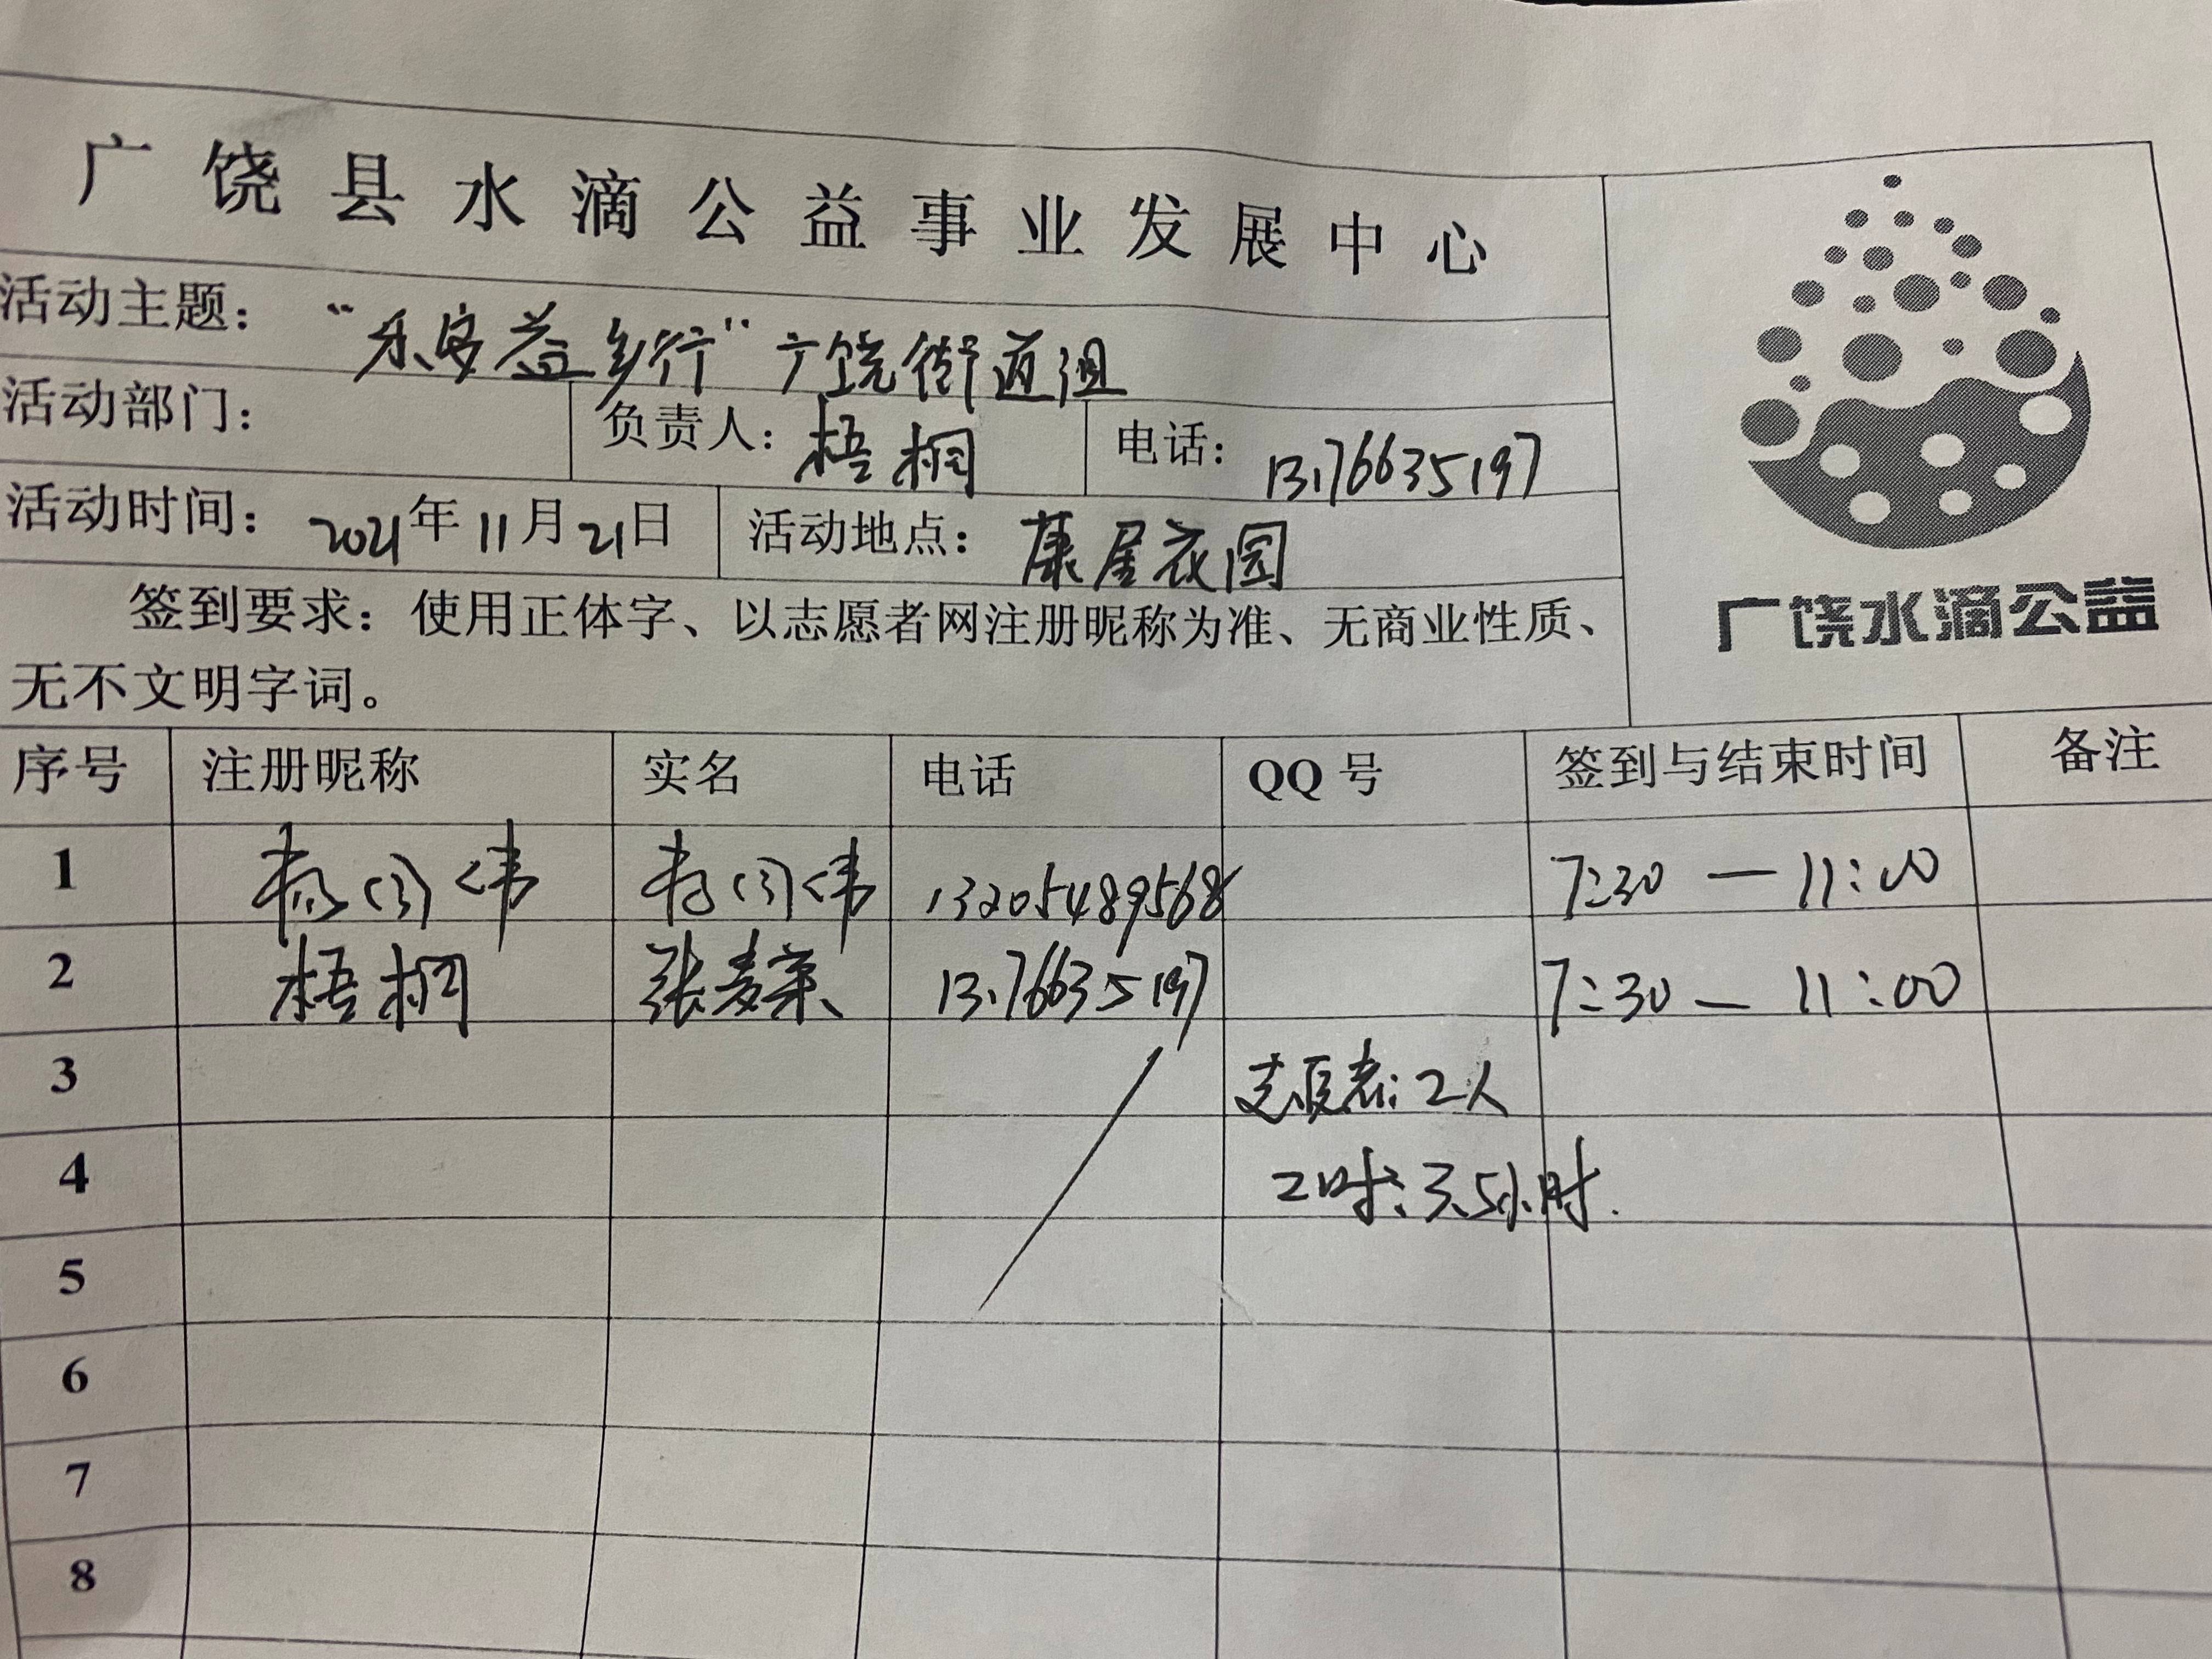 广饶县水滴公益事业发展中心
活动主题：“乐安益乡行”广饶街道组
活动部门：	负责人：梧桐	电话：13176635197
活动时间：2021年11月21日	活动地点：康居花园
签到要求：使用正体字、以志愿者网注册昵称为准、无商业性质、
无不文明字词。
广饶水滴公益
序号	注册昵称	实名	电话	QQ号	签到与结束时间	备注
1	13205489568	7:30—11:00
2	梧桐	张麦荣	13176635197	7:30—11:00
3	志愿者：2人
4	工时：3.5小时.
5
6
7
8